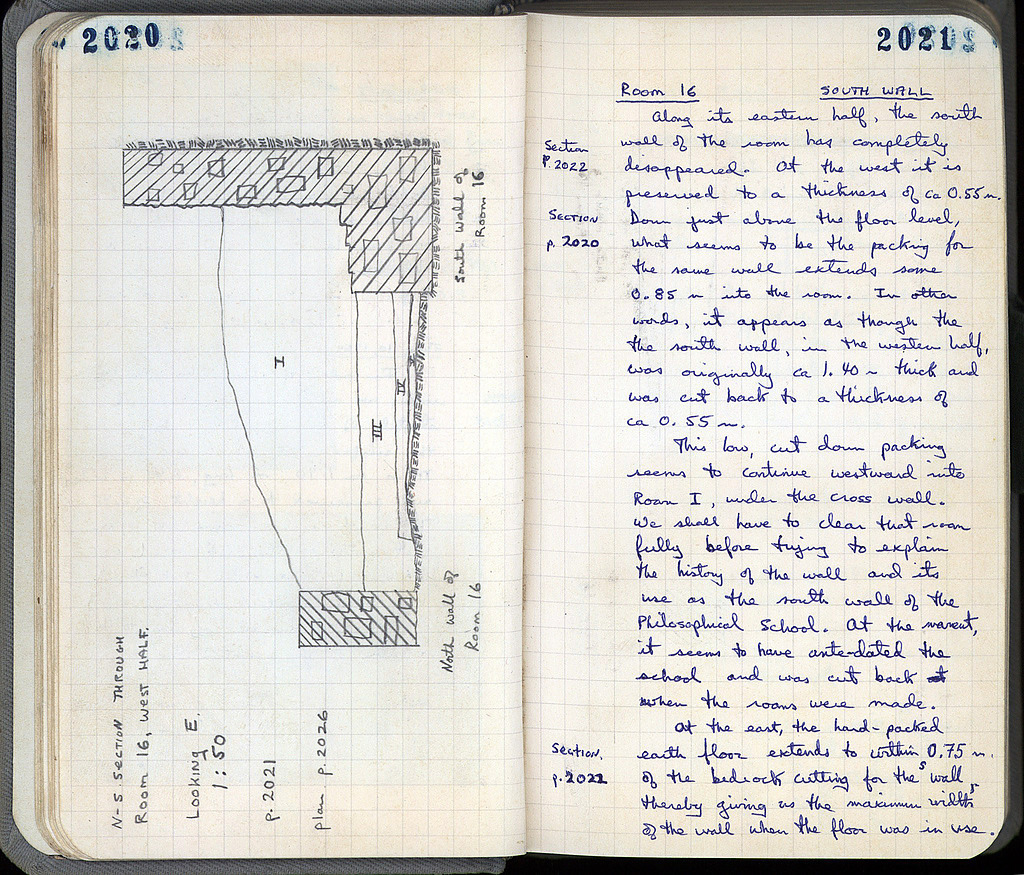 2020
N-S SECTION THROUGH
ROOM 16, WEST HALF.
LOOKING E.
1:50
p. 2021
plan p. 2026
I
III
IV
V
South Wall of
Room 16
North Wall of
Room 16
2021
Room 16 SOUTH WALL
Along its eastern half, the south
Section
P. 2022
wall of the room has completely
disappeared. At the west it is
preserved to a thickness of ca 0.55 m.
SECTION
p. 2020
Down just above the floor level,
what seems to be the packing for
the same wall extends some
0.85 m into the room. In other
words, it appears as though the
the south wall, in the western half,
was originally ca 1.40 m thick and
was cut back to a thickness of
ca 0.55 m.
This low, cut down packing
seems to continue westward into
Room I, under the cross wall.
We shall have to clear that room
fully before trying to explain
the history of the wall and its
use as the south wall of the
Philosophical School. At the moment,
it seems to have ante-dated the
school and was cut back
when the rooms were made.
At the east, the hard-packed
Section.
p. 2022
earth floor extends to within 0.75 m.
of the bedrock cutting for the S wall,
thereby giving us the maximum width
of the wall when the floor was in use.